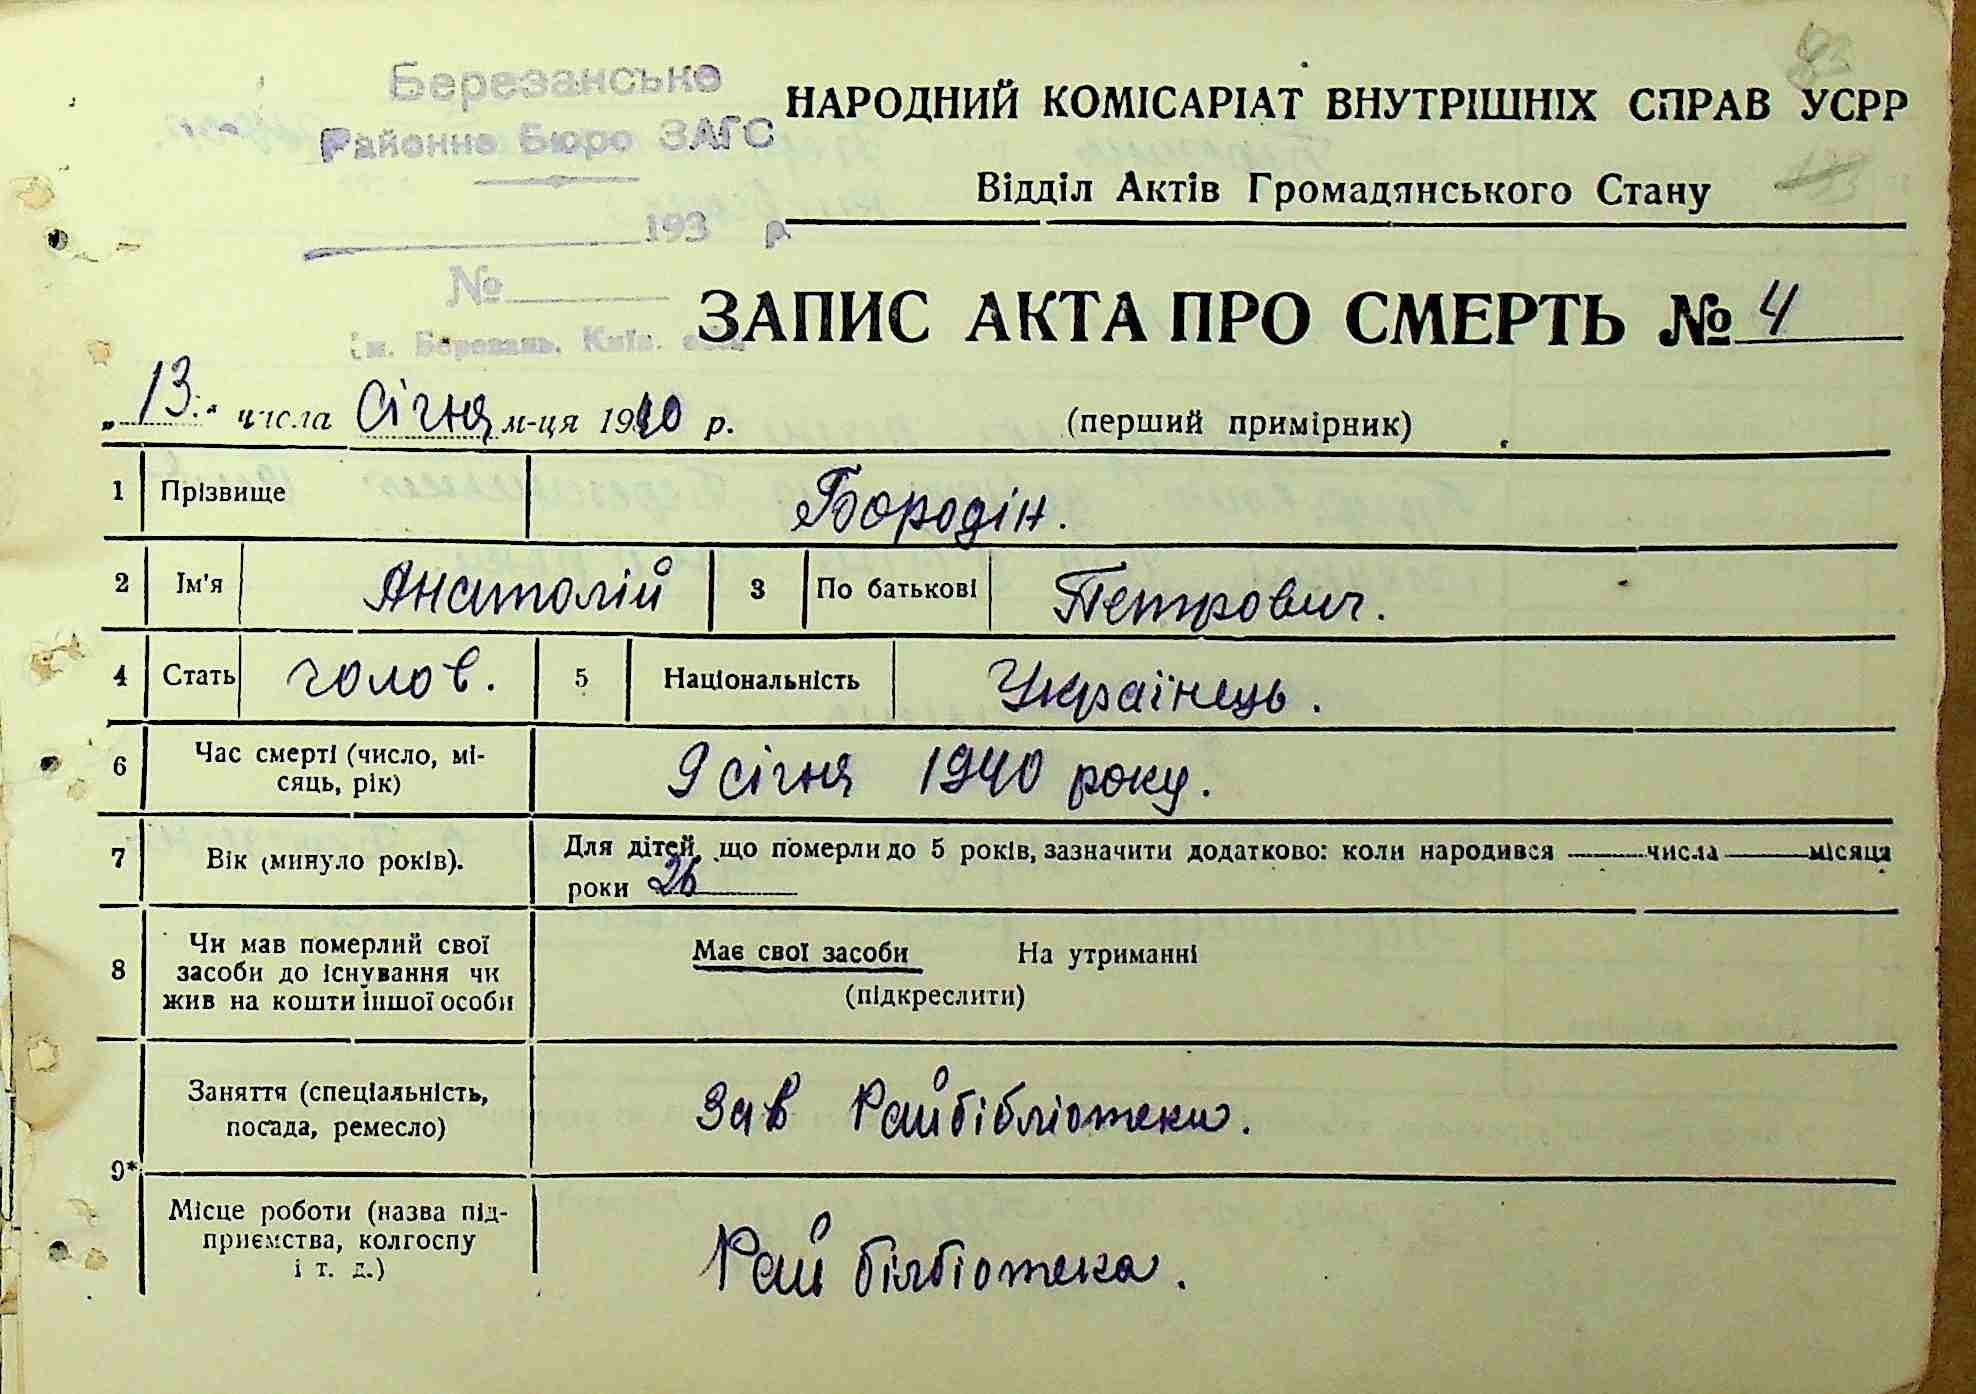 Березанське
Районне Бюро ЗАГС
193 р.
№
м. Березань, Київ. обл.
НАРОДНИЙ КОМІСАРІАТ ВНУТРІШНІХ СПРАВ УСРР
Відділ Актів Громадянського Стану
ЗАПИС АКТА ПРО СМЕРТЬ № 4
„13.“ числа Січня м-ця 1940 р. (перший примірник)
1 Прізвище Бородін.
2 Ім'я Анатолій 3 По батькові Петрович.
4 Стать чолов. 5 Національність Українець.
6 Час смерті (число, мі-
сяць, рік) 9 січня 1940 року.
7 Вік (минуло років). Для дітей, що померли до 5 років, зазначити додатково: коли народився числа місяця
роки 26
8 Чи мав померлий свої
засоби до існування чи
жив на кошти іншої особи
Має свої засоби На утриманні
(підкреслити)
9* Заняття (спеціальність,
посада, ремесло) Зав Райбібліотеки.
Місце роботи (назва під-
приємства, колгоспу
і т. д.) Рай білбіотека.